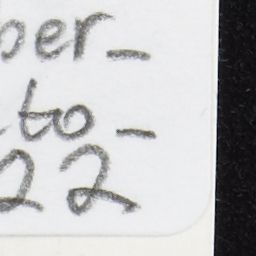 per_
to_
22